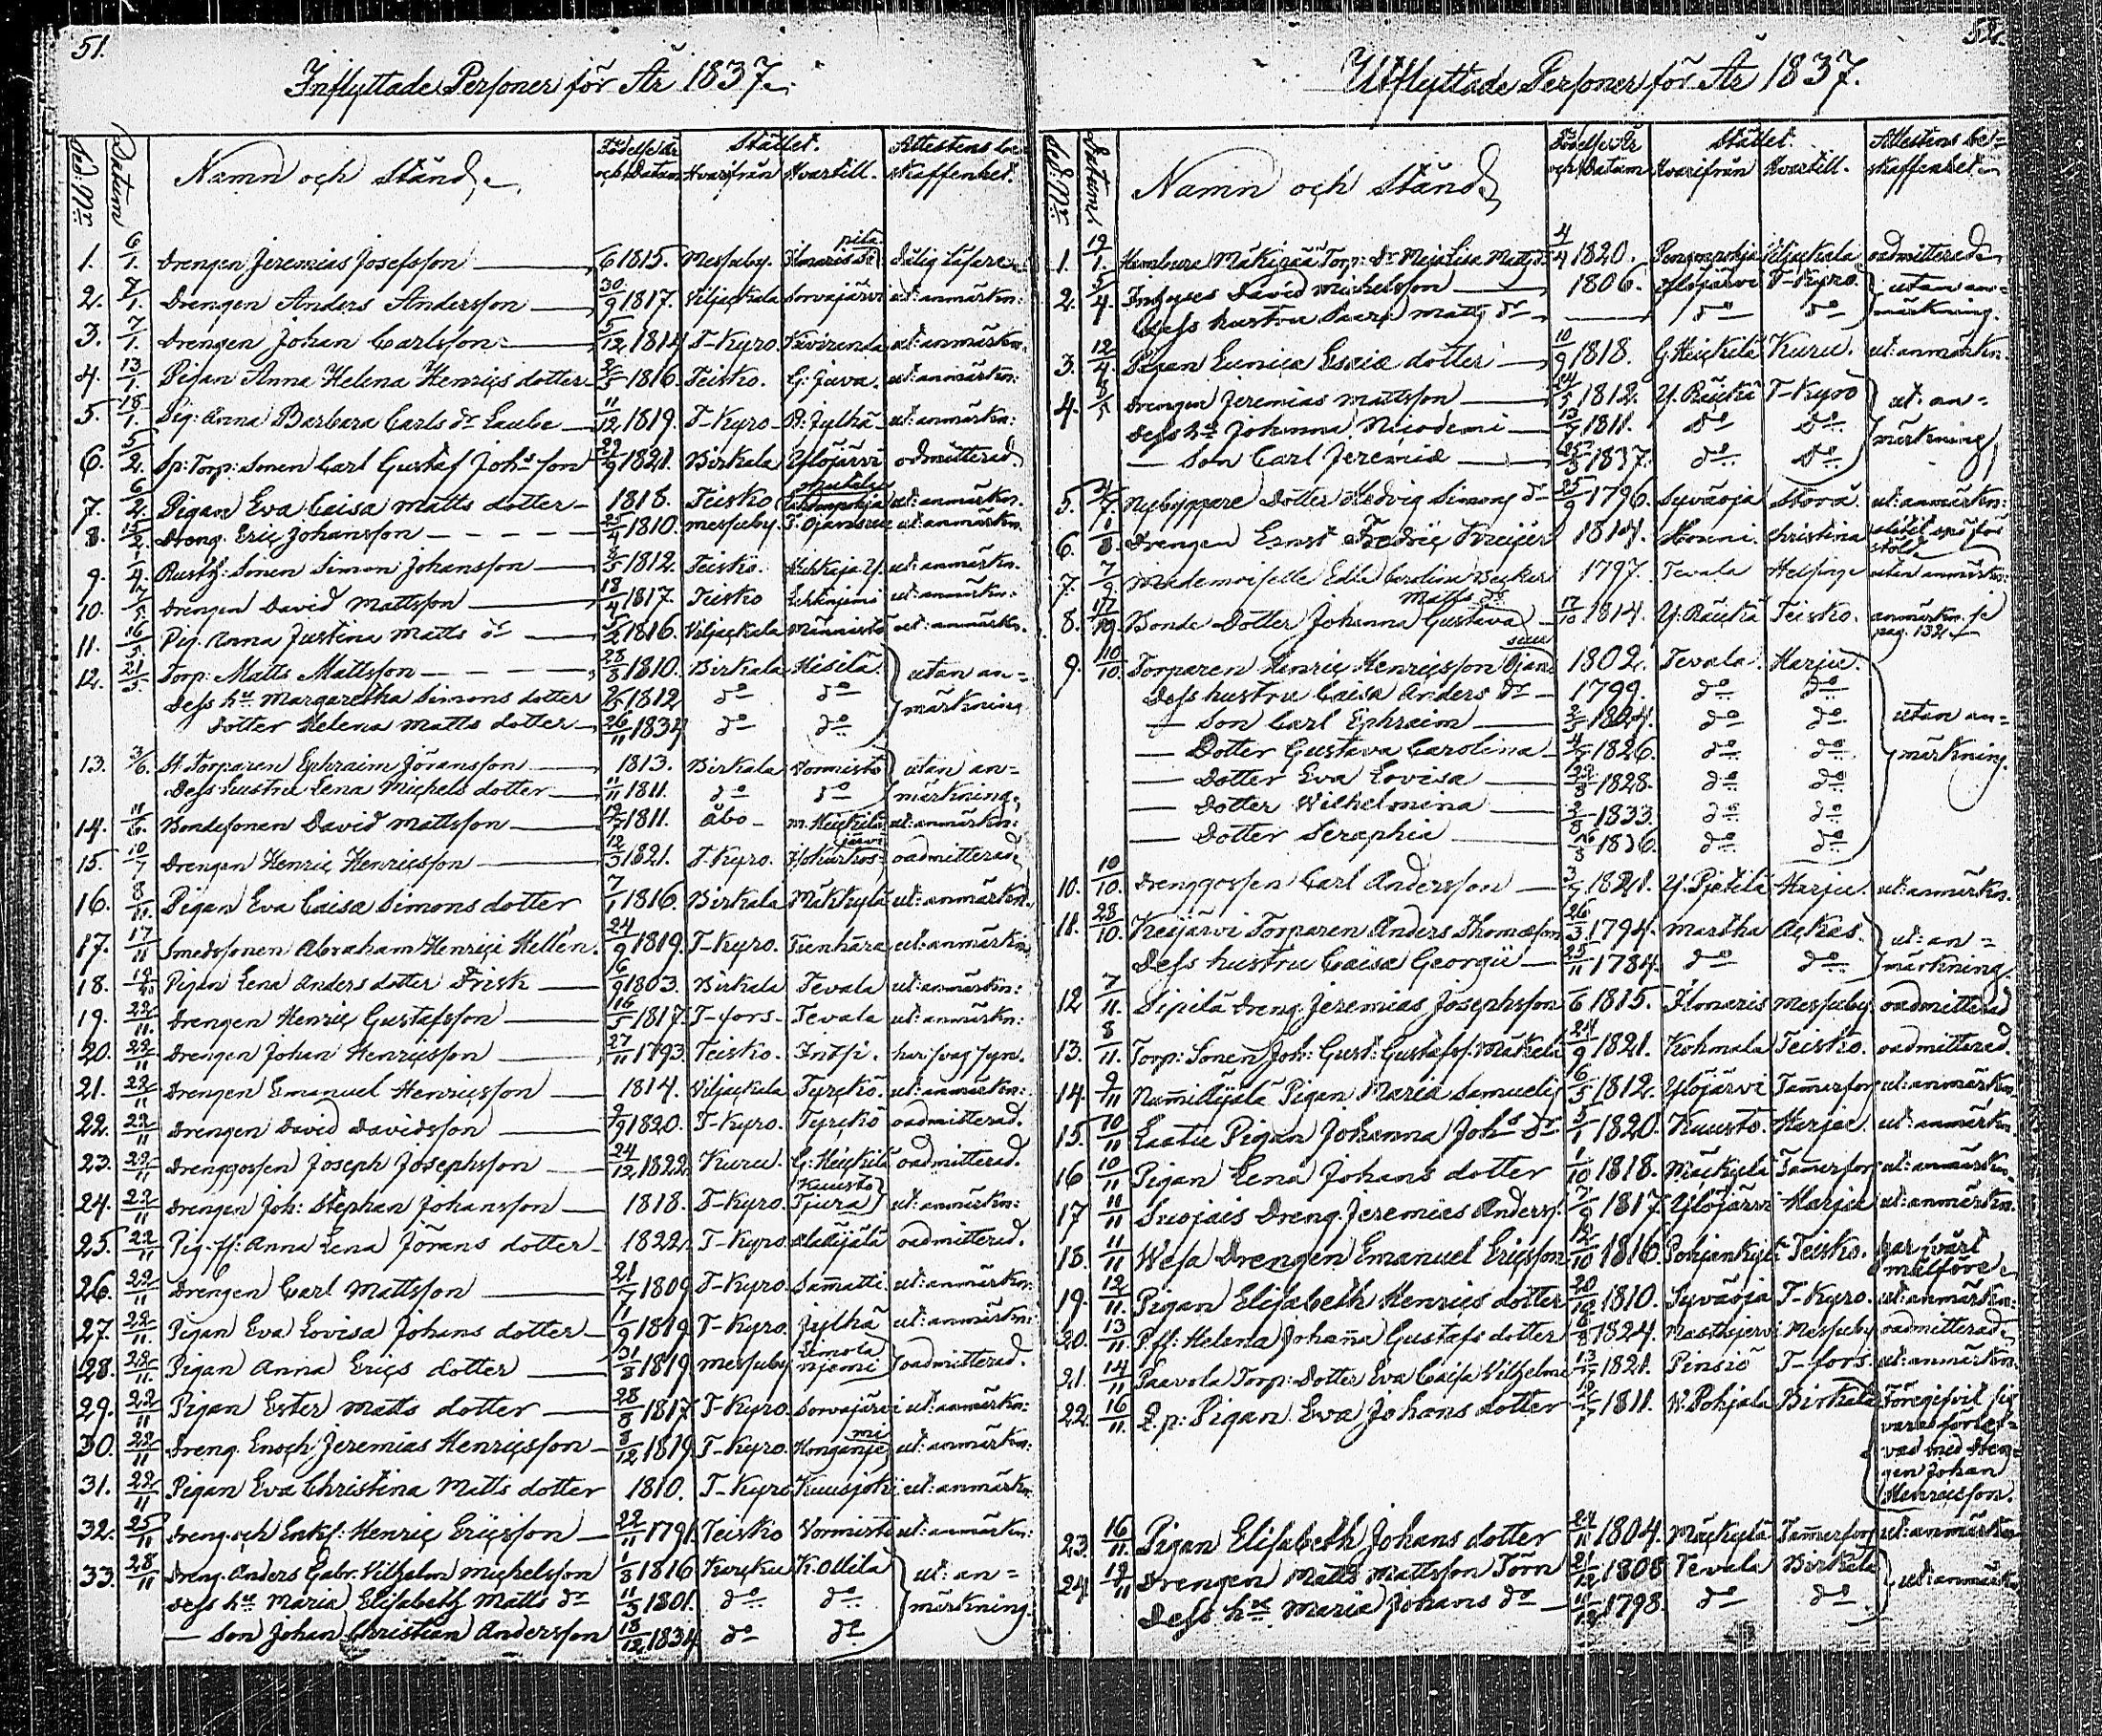 51.
Inflyttade Personer för År 1837.
Ped. Nr Datum Namn och Stånd Födelse År och Datum Stället. Hvarifrån Hvartill. Attestens be- skaffenhet.
1. 6/1. Drengen Jeremias Josefsson 6 1815. Messuby. dålig läsare
2. 7/1. Drengen Anders Andersson 30/9 1817. Viljackala Sorvajärvi ut: anmärkn:
3. 7/1. Drengen Johan Carlsson 5/12 1814 T-Kyro. ut: anmärkn.
4. 13/1. Pigan Anna Helena Henrics dotter 1816. Teisko. G: Juva. ut: anmärkn:
5. 18/1. Pig: Anna Barbara Carls dr Laube 11/12 1819. T-Kyro Jylhä ut: anmärkn:
6. 5/2. Sp: Torp: Sonen Carl Gustaf Johs son 29/9 1821. Birkala Ylöjärvi admitterad
7. 6/2. Pigan Eva Caisa Matts dotter 1818. Teisko ut: anmärkn.
8. 15/2. Dreng. Eric Johansson 25/4 1810. Messuby. ut: anmärkn.
9. 1/4. Rusth: Sonen Simon Johansson 1812. Teisko. ut: anmärkn.
10. 7/5. Drengen David Mattsson 18/4 1817. Teisko ut: anmärkn:
11. 16/5. Pig. Anna Justina Matts dr 1816. Viljackala Männistö ut: anmärkn.
12. 21/5. Torp: Matts Mattsson 28/8 1810. Birkala Hisilä. utan an=
Dess hu Margaretha Simons dotter 1812 do do märkning
Dotter Helena Matts dotter 26/11 1834 do do
13. 3/6. St. Torparen Ephraim Jöransson 1813. Birkala Vormistö utan an=
Dess hustru Lena Michels dotter 11/11 1811. do do märkning.
14. 11/6. Bondesonen David Mattsson 1811. Åbo M. Heickilä ut: anmärkn:
15. 10/7 Drengen Henric Henricsson 12/3 1821. T-Kyro. oadmitterad
16. 8/11. Pigan Eva Caisa Simons dotter 7/1 1816. Birkala Mäkkylä ut: anmärkn.
17. 17/11 Smedssonen Abraham Henrici Hellén. 24/9 1819. T-Kyro. Tienhära ut: anmärkn
18. Pigan Lena Anders dotter Frisk 16/9 1803. Birkala Tevala ut: anmärkn:
19. 22/11. Drengen Henric Gustafsson 16/5 1817. T-fors. Tevala ut: anmärkn:
20. 22/11 Drengen Johan Henricsson 27/11 1793. Teisko. har svag syn.
21. 22/11 Drengen Emanuel Henricsson 1814. Viljackala Tyrckö ut: anmärkn:
22. 22/11 Drengen David Davidsson 1820. T-Kyro. Tyrckö oadmitterad.
23. 22/11 Drenggossen Joseph Josephsson 24/12 1822. Kuru. G: Heickilä oadmitterad.
24. 22/11 Drengen Joh: Stephan Johansson 1818. T-Kyro. Kuusto Tjura ut: anmärkn:
25. 22/11 Pig. fl: Anna Lena Jörans dotter 1822. T-Kyro. Alakylä oadmitterad.
26. 22/11 Drengen Carl Mattsson 21/7 1809 T-Kyro. Sammatti ut: anmärkn:
27. 22/11. Pigan Eva Lovisa Johans dotter 1/9 1819. T-Kyro. Jylhä ut: anmärkn:
28. 22/11. Pigan Anna Erics dotter 31/8 1819. Messuby Simola njemi oadmitterad.
29. 22/11 Pigan Ester Matts dotter 28/8 1817. T-Kyro. Sorvajärvi ut: anmärkn:
30. 22/11 Dreng. Enoch Jeremias Henricsson 8/12 1819. T-Kyro. Honganje mi ut: anmärkn:
31. 22/11 Pigan Eva Christina Matts dotter 1810. T-Kyro Kuusjoki ut: anmärkn.
32. 25/11 Dreng. och Enkf: Henric Ericsson 22/11 1791. Teisko Vormistö ut: anmärkn:
33. 28/11 Dreng. Anders Gabr. Vilhelm Michelsson 1/8 1816 K. Ollila ut: an=
Dess hu Maria Elisabeth Matts dr 11/3 1801. do do märkning.
Son Johan Christian Andersson 18/12 1834 do do
52.
Utflyttade Personer för År 1837.
Ped. Nr Datum. Namn och Stånd Födelse År och Datum Stället. Hvarifrån Hvartill. Attestens be= skaffenhet
1. 19/1. Mäkipää Torp: Dr Maja Lisa Matts dr 4/4 1820. Viljackala oadmitterad
2. 3/4. Inhyses David Michelsson 1806. Ylöjärvi T-Kyro. utan an=
Dess hustru Saara Matts dr do do märkning.
3. 12/4. Pigan Eunica Esaiæ dotter 10/9 1818. G. Heickilä Kuru. ut: anmärkn.
4. 8/5 Drengen Jeremias Mattsson 1812. Y. Räickä T-Kyro ut: an=
Dess hu Johanna Nicodemi 1811. do do märkning
Son Carl Jeremias 25/3 1837. do do
5. 4/7. Nybyggare Dotter Hedvig Simons dr 25/9 1796. Syväoja ut: anmärkn:
6. 1/8. Drengen Ernst Fredric Freijer 1814. Honni. Christina stöld
7. 7/9. Mademoiselle Edla Carolina Becker 1797. Tevala Helsinge utan anmärkn:
8. 17/10. Bonde Dotter Johanna Gustava Matts dr 17/10 1814. Y. Räickä Teisko. anmärkn. se pag. 132.
9. 10/10. Torparen Henric Henricsson Ojan suu 1802. Tevala. Harju.
Dess hustru Caisa Anders dr 1799. do do
Son Carl Ephraim 1824. do do utan an=
Dotter Gustava Carolina 1826. do do märkning.
Dotter Eva Lovisa 1828. do do
Dotter Wilhelmina 1833. do do
Dotter Seraphia 1836. do do
10. 10/10. Drenggossen Carl Andersson 1821. Y. Pjetilä Harju. ut: anmärkn.
11. 28/10. Keijärvi Torparen Anders Thomasson 26/3 1794. Martha Ackas. ut: an=
Dess hustru Caisa Georgii 25/11 1784. do do märkning
12 7/11. Sipilä Dreng. Jeremias Josephsson 6 1815. Ilmaris Messuby. oadmitterad
13. 8/11. Torp: Sonen Joh: Gust: Gustafss. Mäkelä 24/9 1821. Kohmala Teisko. oadmitterad.
14. 9/11 Pigan Maria Samuelis 6/5 1812. Ylöjärvi Tam̄erfors ut: anmärkn.
15. 10/11 Laatu Pigan Johanna Johs dr 1820. Kuusto. Harju. ut: anmärkn.
16 10/11 Pigan Lena Johans dotter 1/10 1818. Mäckylä Tam̄erfors ut: anmärkn.
17 11/11 Suojais Dreng. Jeremias Anderss. 7/9 1817. Ylöjärvi Harju ut: anmärkn.
18. 11/11 Wesa Drengen Emanuel Ericsson 12/10 1816. Pohjankyl: Teisko. har svårt målföre
19. 12/11. Pigan Elisabeth Henrics dotter 1810. Syväoja T-Kyro. ut: anmärkn:
20. 13/11. P.fl: Helena Johanna Gustafs dotter 1824. Messuby oadmitterad
21. 14/11 Paavola Torp: Dotter Eva Caisa Vilhelmi 1821. Pinsiö T-fors. ut: anmärkn.
22. 16/11. Pigan Eva Johans dotter 1811. W. Pohjala Birkala Föregifvit sig
vara förlof=
vad med Dren=
gen Johan
Henricsson.
23. 16/11. Pigan Elisabeth Johans dotter 1804. Mäckylä Tam̄erfors ut: anmärkn
24. 19/11 Drengen Matts Mattsson Törn 21/12 1808 Tevala Birkala ut: anmärkn
Dess hu Maria Johans dr 1798. do do